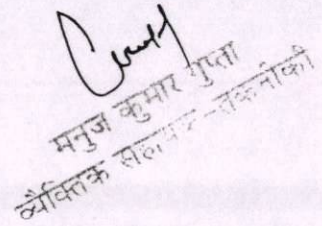 मनुज कुमार गुप्ता
व्यक्तिक सहायक -तकनीकी